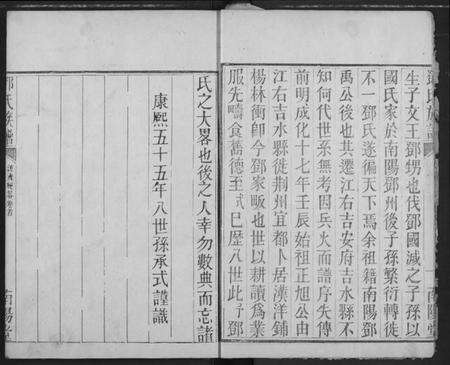 生子文王鄧甥也伐鄧國滅之子孫以
國氏家於南陽鄧州後子孫繁衍轉徙
不一鄧氏遂徧天下焉余祖籍南陽鄧
禹公後也其遷江右吉安府吉水縣不
知何代世系無考因兵火而譜序失傳
前明成化十七年壬辰始祖正旭公由
江右吉水縣徙荆州宜都卜居漢洋鋪
楊林衝卽今鄧家畈也世以耕讀為業
服先疇食舊德至式巳歷八世此予鄧
氏之大畧也後之人幸勿數典而忘諸
康熙五十五年八世孫承式謹識
鄧氏族譜
南陽堂